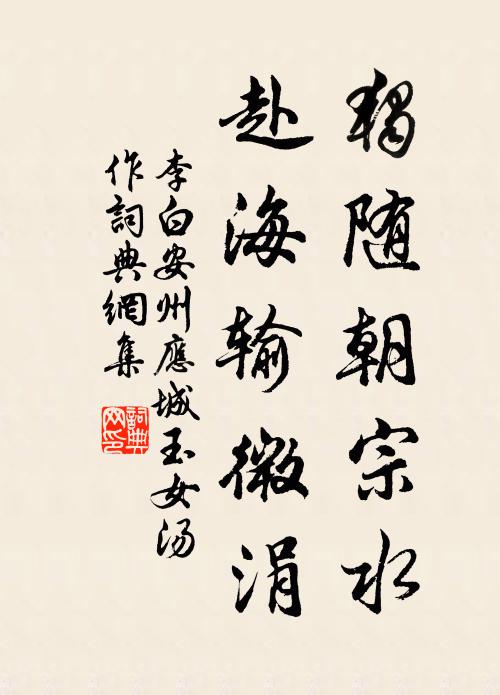 獨随朝宗水
赴海输微涓
李白安州應城玉女汤
作詞典網集
詞典
网印